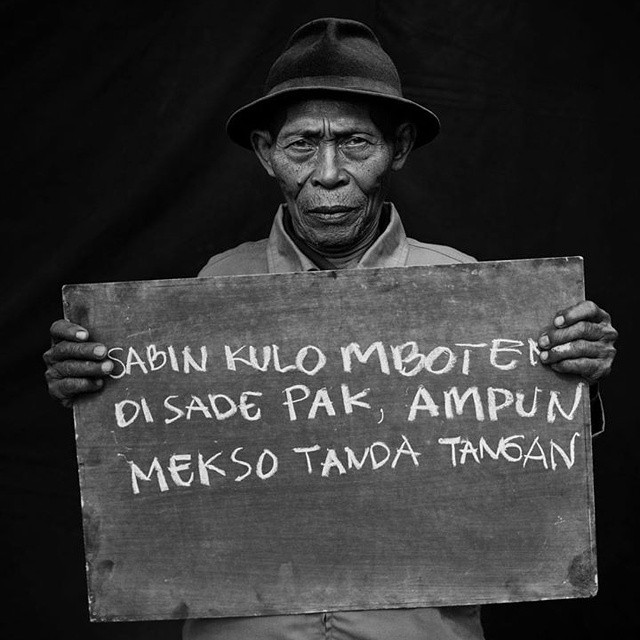 SABIN KULO MBOTEN
DI SADE PAK, AMPUN
MEKSO TANDA TANGAN